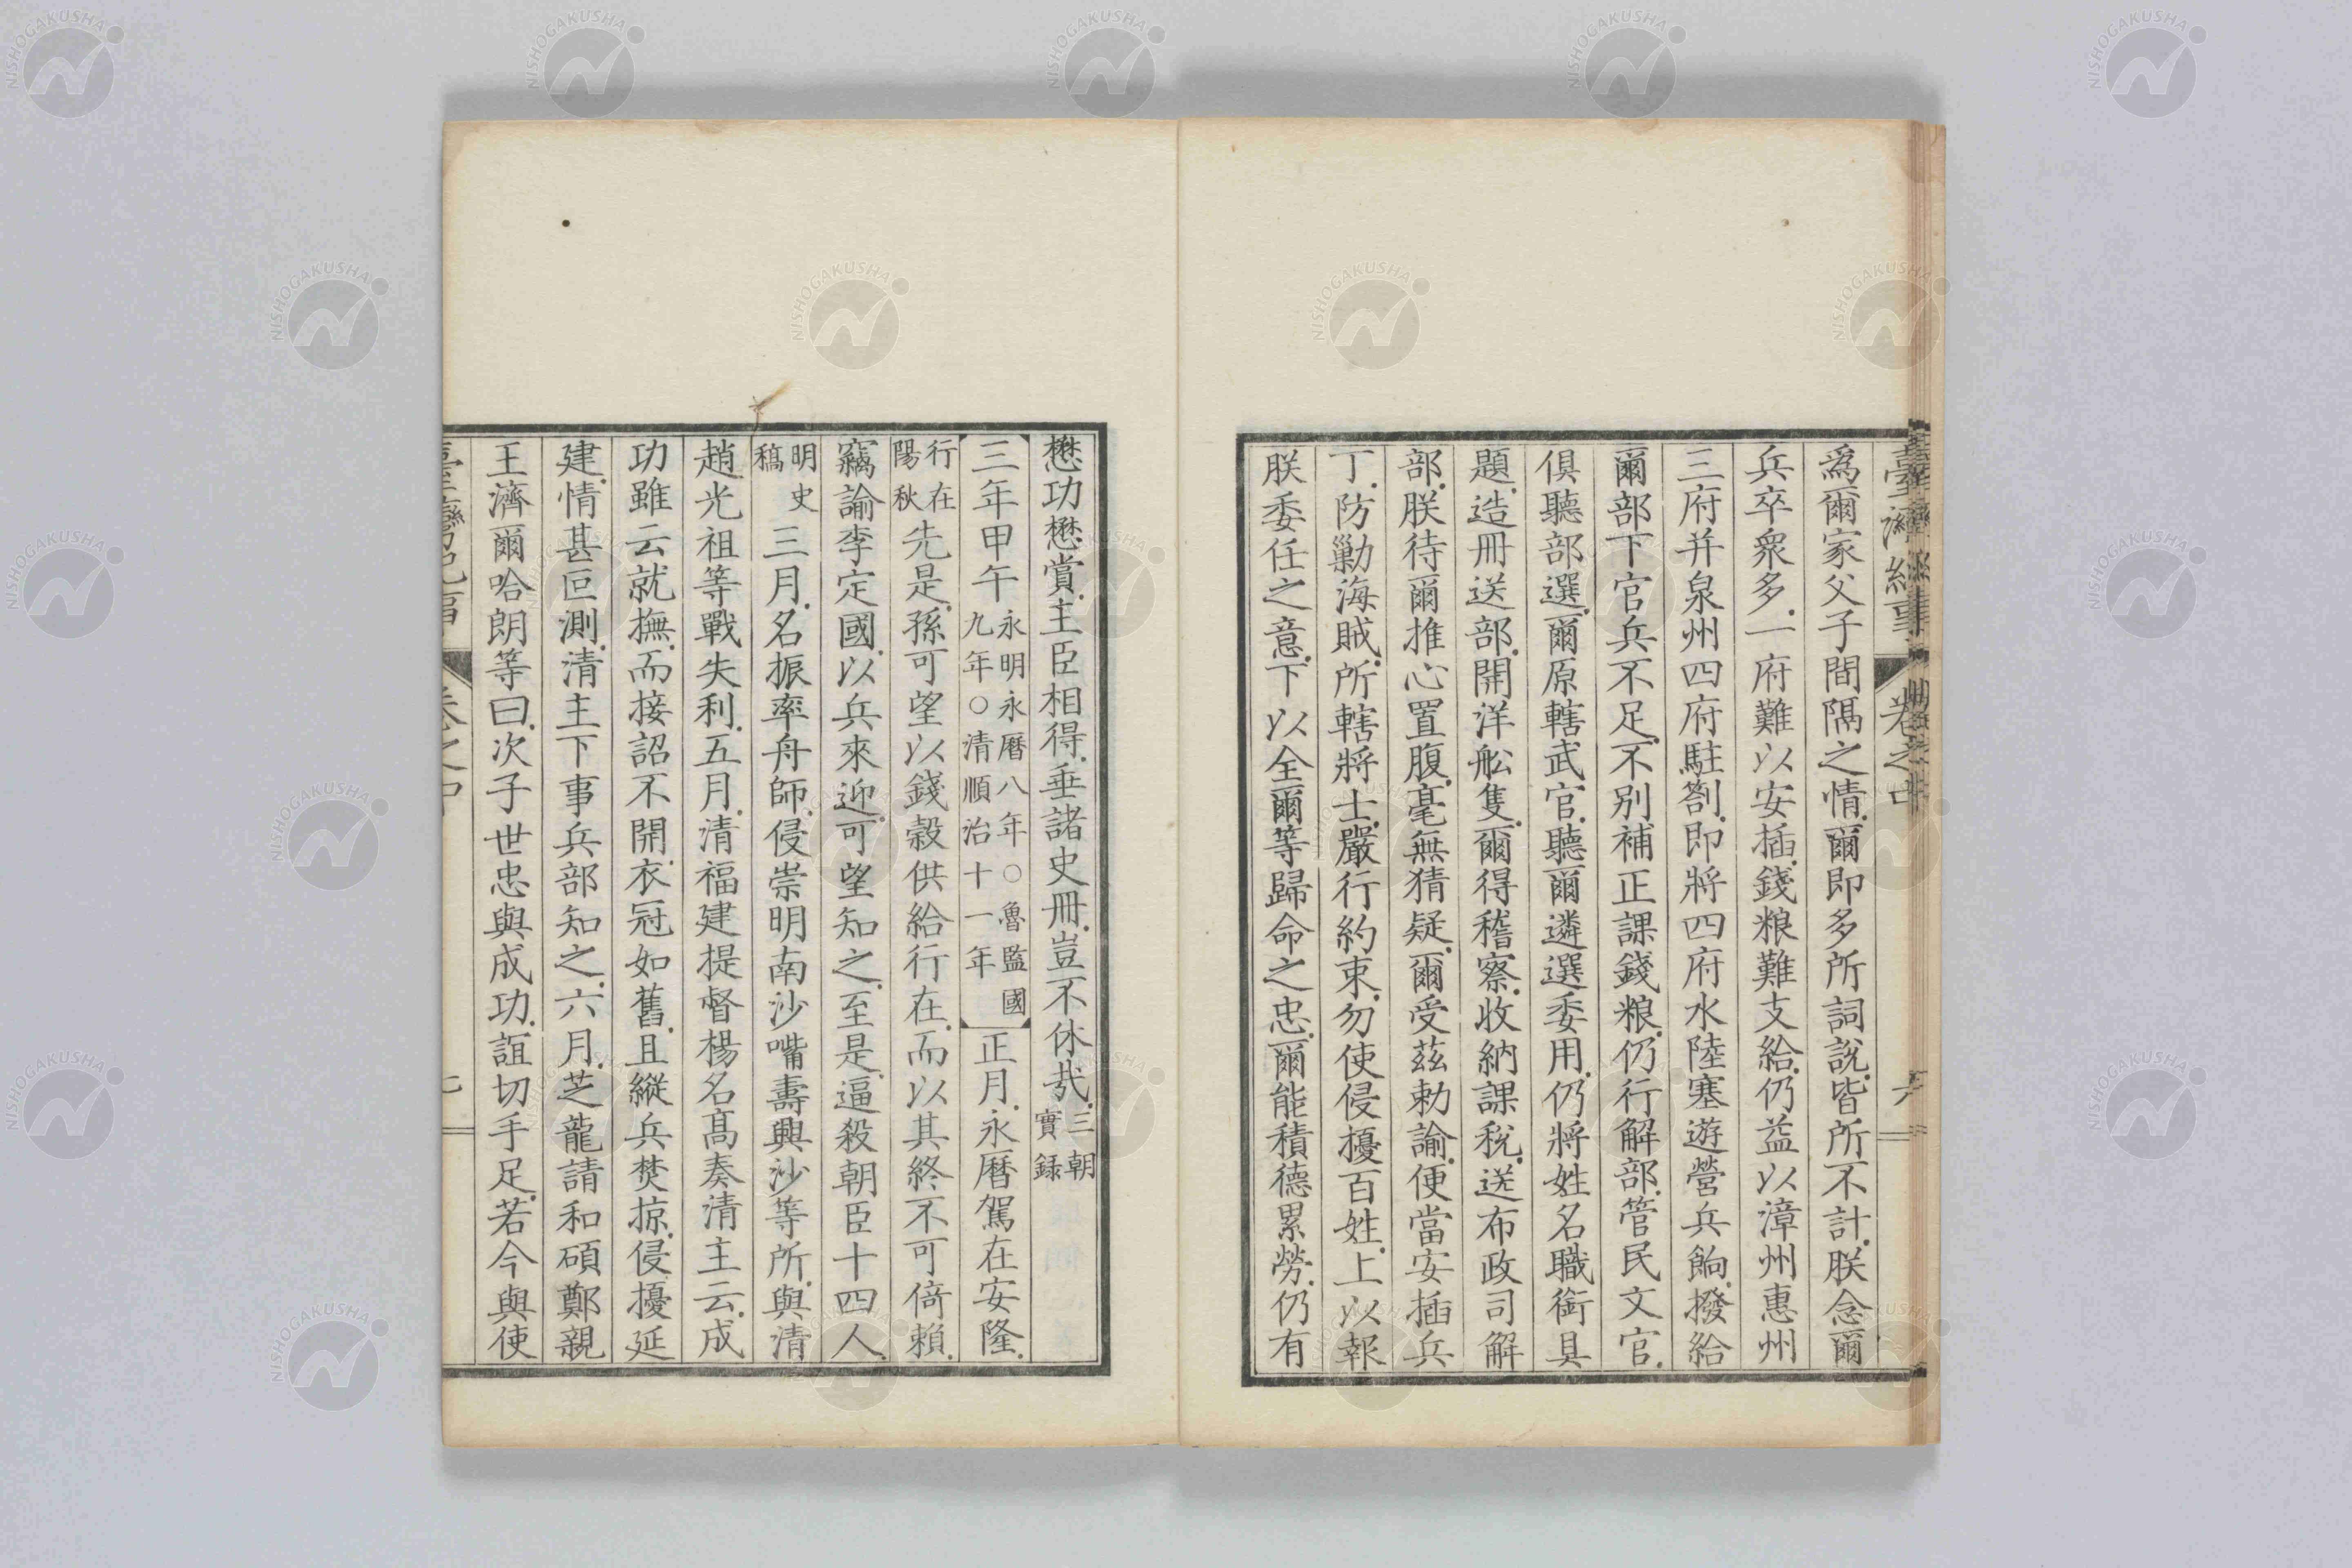 爲爾家父子間隔之情爾即多所詞說皆所不計朕念爾
兵卒衆多一府難以安插錢粮難支給仍益以漳州惠州
三府并泉州四府駐劄即將四府水陸塞遊營兵餉撥給
爾部下官兵不足不別補正課錢粮仍行解部管民文官
俱聽部選爾原轄武官聽爾遴選委用仍將姓名職銜具
題造冊送部開洋舩隻爾得稽察收納課稅送布政司解
部朕待爾推心置腹毫無猜疑爾受茲勅諭便當安插兵
丁防勦海賊所轄將士嚴行約束勿使侵擾百姓上以報
朕委任之意下以全爾等歸命之忠爾能積德累勞仍有
懋功懋賞主臣相得垂諸史冊豈不休哉三朝實録
三年甲午永明永曆八年○魯監國九年○清順治十一年正月永曆駕在安隆
行在陽秋先是孫可望以錢穀供給行在而以其終不可倚賴
竊諭李定國以兵來迎可望知之至是逼殺朝臣十四人
明史稿三月名振率舟師侵崇明南沙嘴壽興沙等所與清
趙光祖等戰失利五月清福建提督楊名高奏清主云成
功雖云就撫而接詔不開衣冠如舊且縱兵焚掠侵擾延
建情甚叵測清主下事兵部知之六月芝龍請和碩鄭親
王濟爾哈朗等曰次子世忠與成功誼切手足若今與使